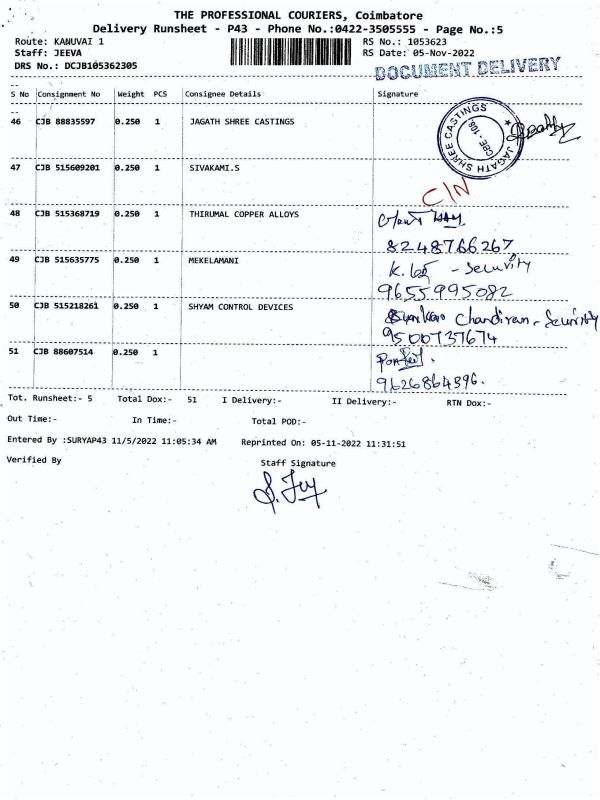 THE PROFESSIONAL COURIERS, Coimbatore
Delivery Runsheet - P43 - Phone No.:0422-3505555 - Page No.:5
Route: KANUVAI 1 RS No.: 1053623
Staff: JEEVA RS Date: 05-Nov-2022
DRS No.: DCJB105362305
DOCUMENT DELIVERY
S No Consignment No Weight PCS Consignee Details Signature
--
46 CJB 88835597 0.250 1 JAGATH SHREE CASTINGS
JAGATH SHREE CASTINGS
CBE - 108
47 CJB 515609201 0.250 1 SIVAKAMI.S
C/N
48 CJB 515368719 0.250 1 THIRUMAL COPPER ALLOYS
8248766267
49 CJB 515635775 0.250 1 MEKELAMANI
- Security
9655995082
50 CJB 515218261 0.250 1 SHYAM CONTROL DEVICES
Chandiran - Security
9500737674
51 CJB 88607514 0.250 1
9626864896.
Tot. Runsheet:- 5 Total Dox:- 51 I Delivery:- II Delivery:- RTN Dox:-
Out Time:- In Time:- Total POD:-
Entered By :SURYAP43 11/5/2022 11:05:34 AM Reprinted On: 05-11-2022 11:31:51
Verified By Staff Signature